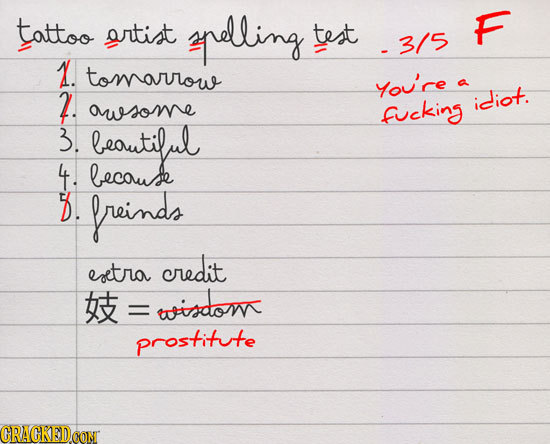 tattoo artist spelling test - 3/5 F
1. tomarrow
You're a
2. awesome
fucking idiot.
3. beautiful
4. because
5. freinds
extra credit
妓 = wisdom
prostitute
CRACKED.COM